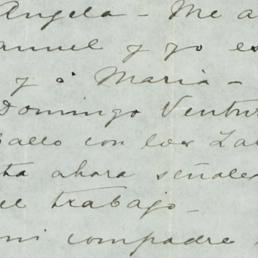 Angela - Me a
anuel y yo es
y á Maria -
Domingo Ventur
ballo con los La
ta ahora señale
el trabajo -
mi compadre